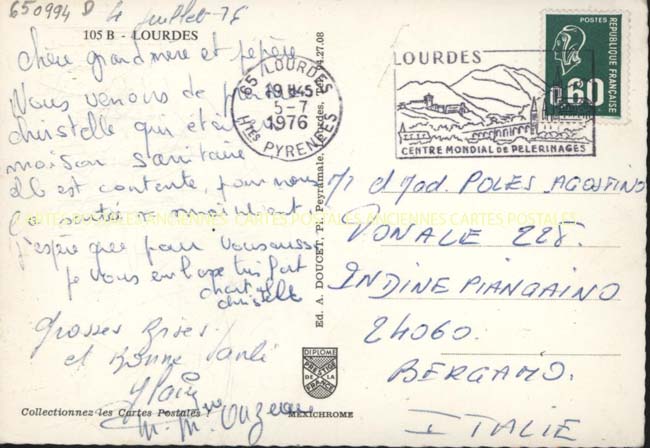 650994 D
4 juillet 76
105 B - LOURDES
Chère grand mère et pépère
Nous venons de
christelle qui était en
maison sanitaire
elle est contente, pour nous
la santé maintient
j'espère que pour vous aussi
je vous embrasse très fort
chantal
christelle
Grosses Bises
et Bonne Santé
Alain
M. Mme
Collectionnez les Cartes Postales !
MEXICHROME
Ed. A. DOUCET, P. Peyramale, Lourdes, 04.27.08
DIPLOME
PRESTIGE
DE LA
FRANCE
65 LOURDES
19 H45
5-7
1976
Htes PYRENEES
LOURDES
CENTRE MONDIAL DE PELERINAGES
POSTES
REPUBLIQUE FRANÇAISE
0,60
M d Mad. POLES AGOSTINO
VONALE 225.
INDINE PIANGAINO
24060.
BERGAMO.
ITALIE
CARTES POSTALES ANCIENNES CARTES POSTALES